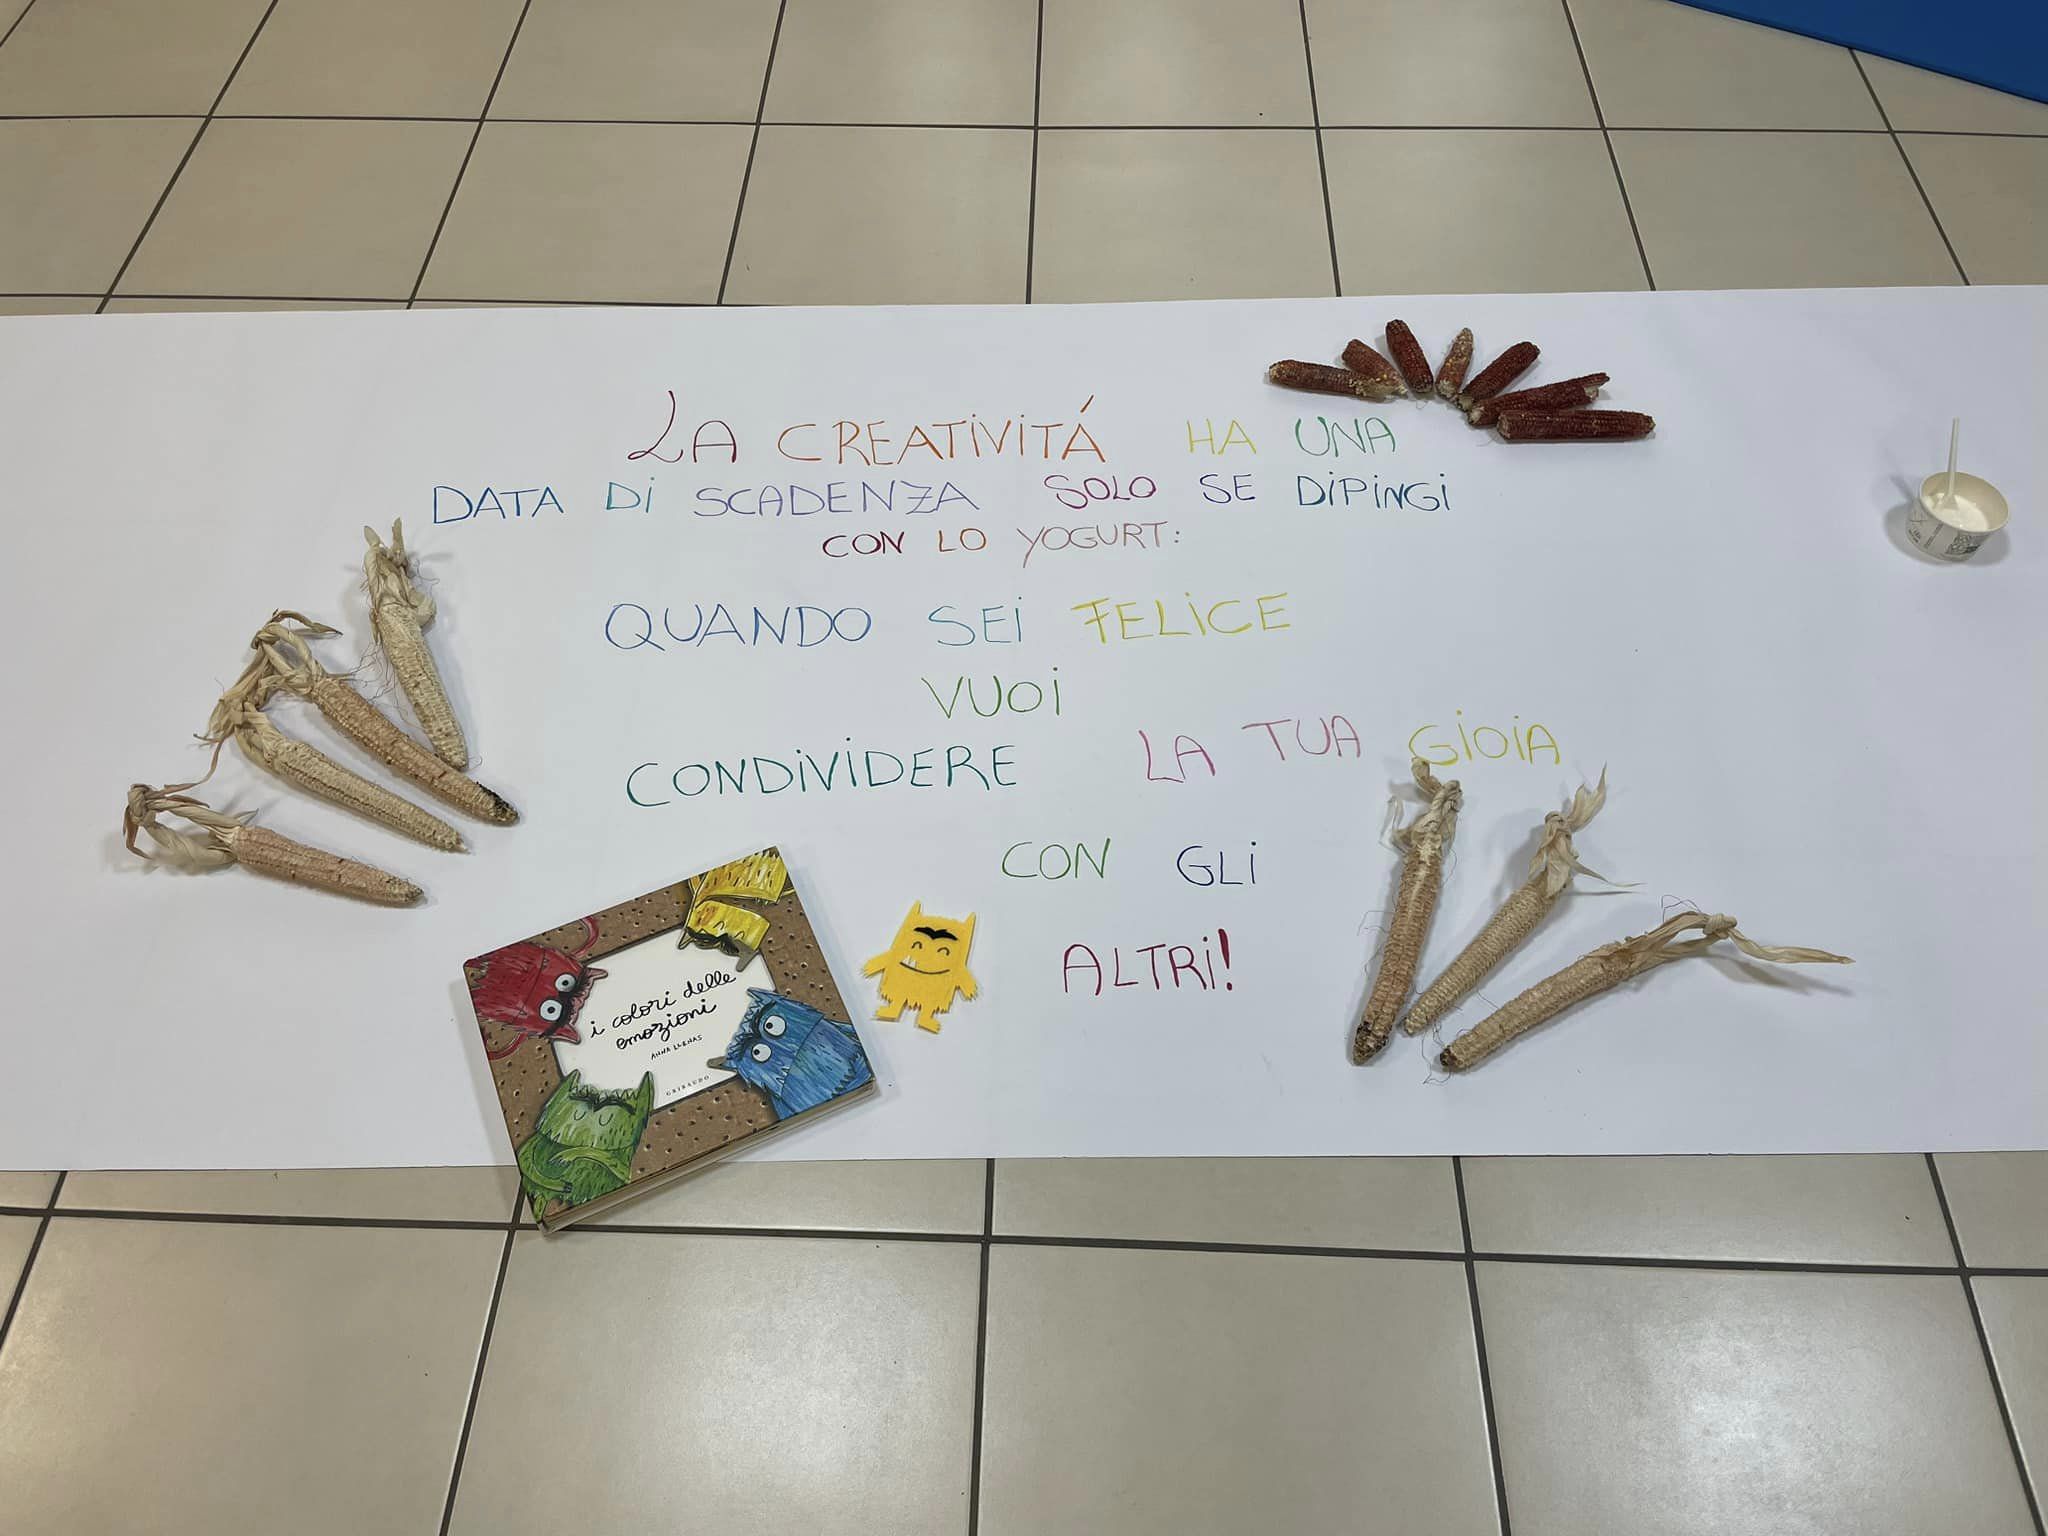 LA CREATIVITÁ HA UNA
DATA DI SCADENZA SOLO SE DIPINGI
CON LO YOGURT:
QUANDO SEI FELICE
VUOI
CONDIVIDERE LA TUA GIOIA
CON GLI
ALTRI!
i colori delle
emozioni
ANNA LLENAS
GRIBAUDO